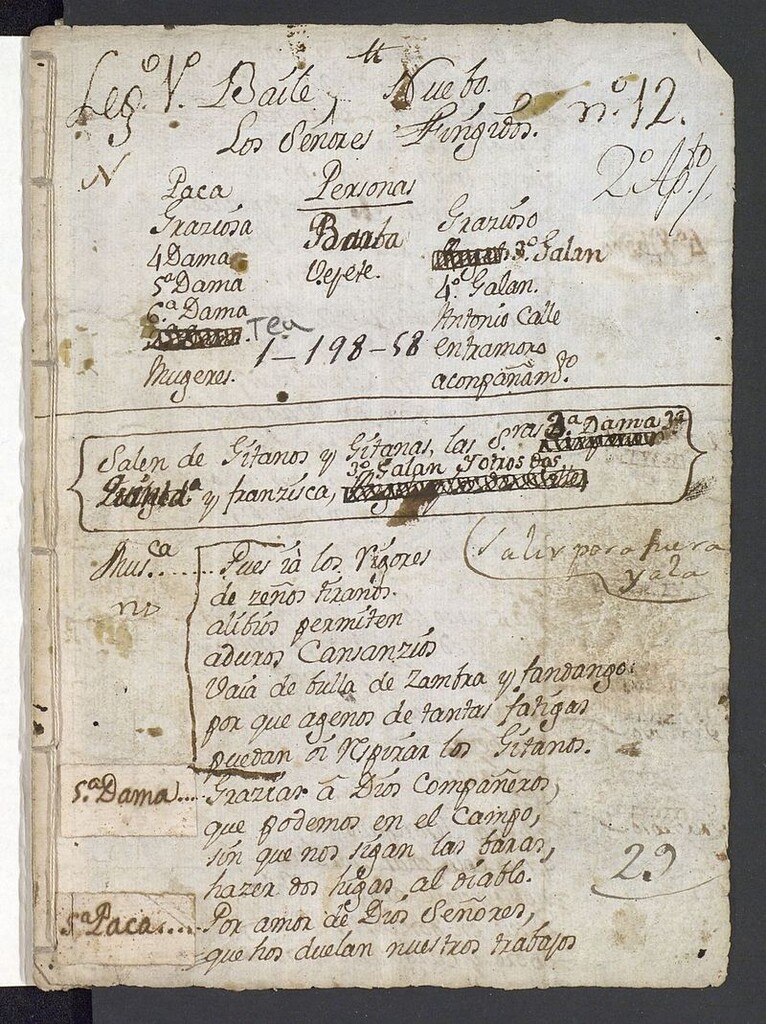 Leg.º 1.º Baile, Nuebo. n.º 12.
Los Señores Fingidos.
N
2.º Ap.to
Paca Personas
Graziosa Barba Grazioso
4 Dama Vejete. 3.º Galan
5.ª Dama 4.º Galan.
6.ª Dama Antonio Calle
Tea
1-198-58 entramoro
Mugeres. aconpañam.to
Salen de Gitanos y Gitanas, las Sras 3.ª Dama 3.ª
y franzisca, 3.º Galan Y otros dos
Mus.ca ...... Pues ià los rigores
(Salir para fuera
no de zeños tiranos. y ala
alibios permiten
a duros Cansanzios
Vaia de bulla de Zambra y fandango:
por que agenos de tantas fatigas
puedan oi respirar los Gitanos.
5.ª Dama .... Grazias à Dios Compañeros,
que podemos en el Campo,
sin que nos sigan las baras,
hazer dos higas al diablo.
29
5.ª Paca ..... Por amor de Dios Señores,
que hos duelan nuestros trabajos